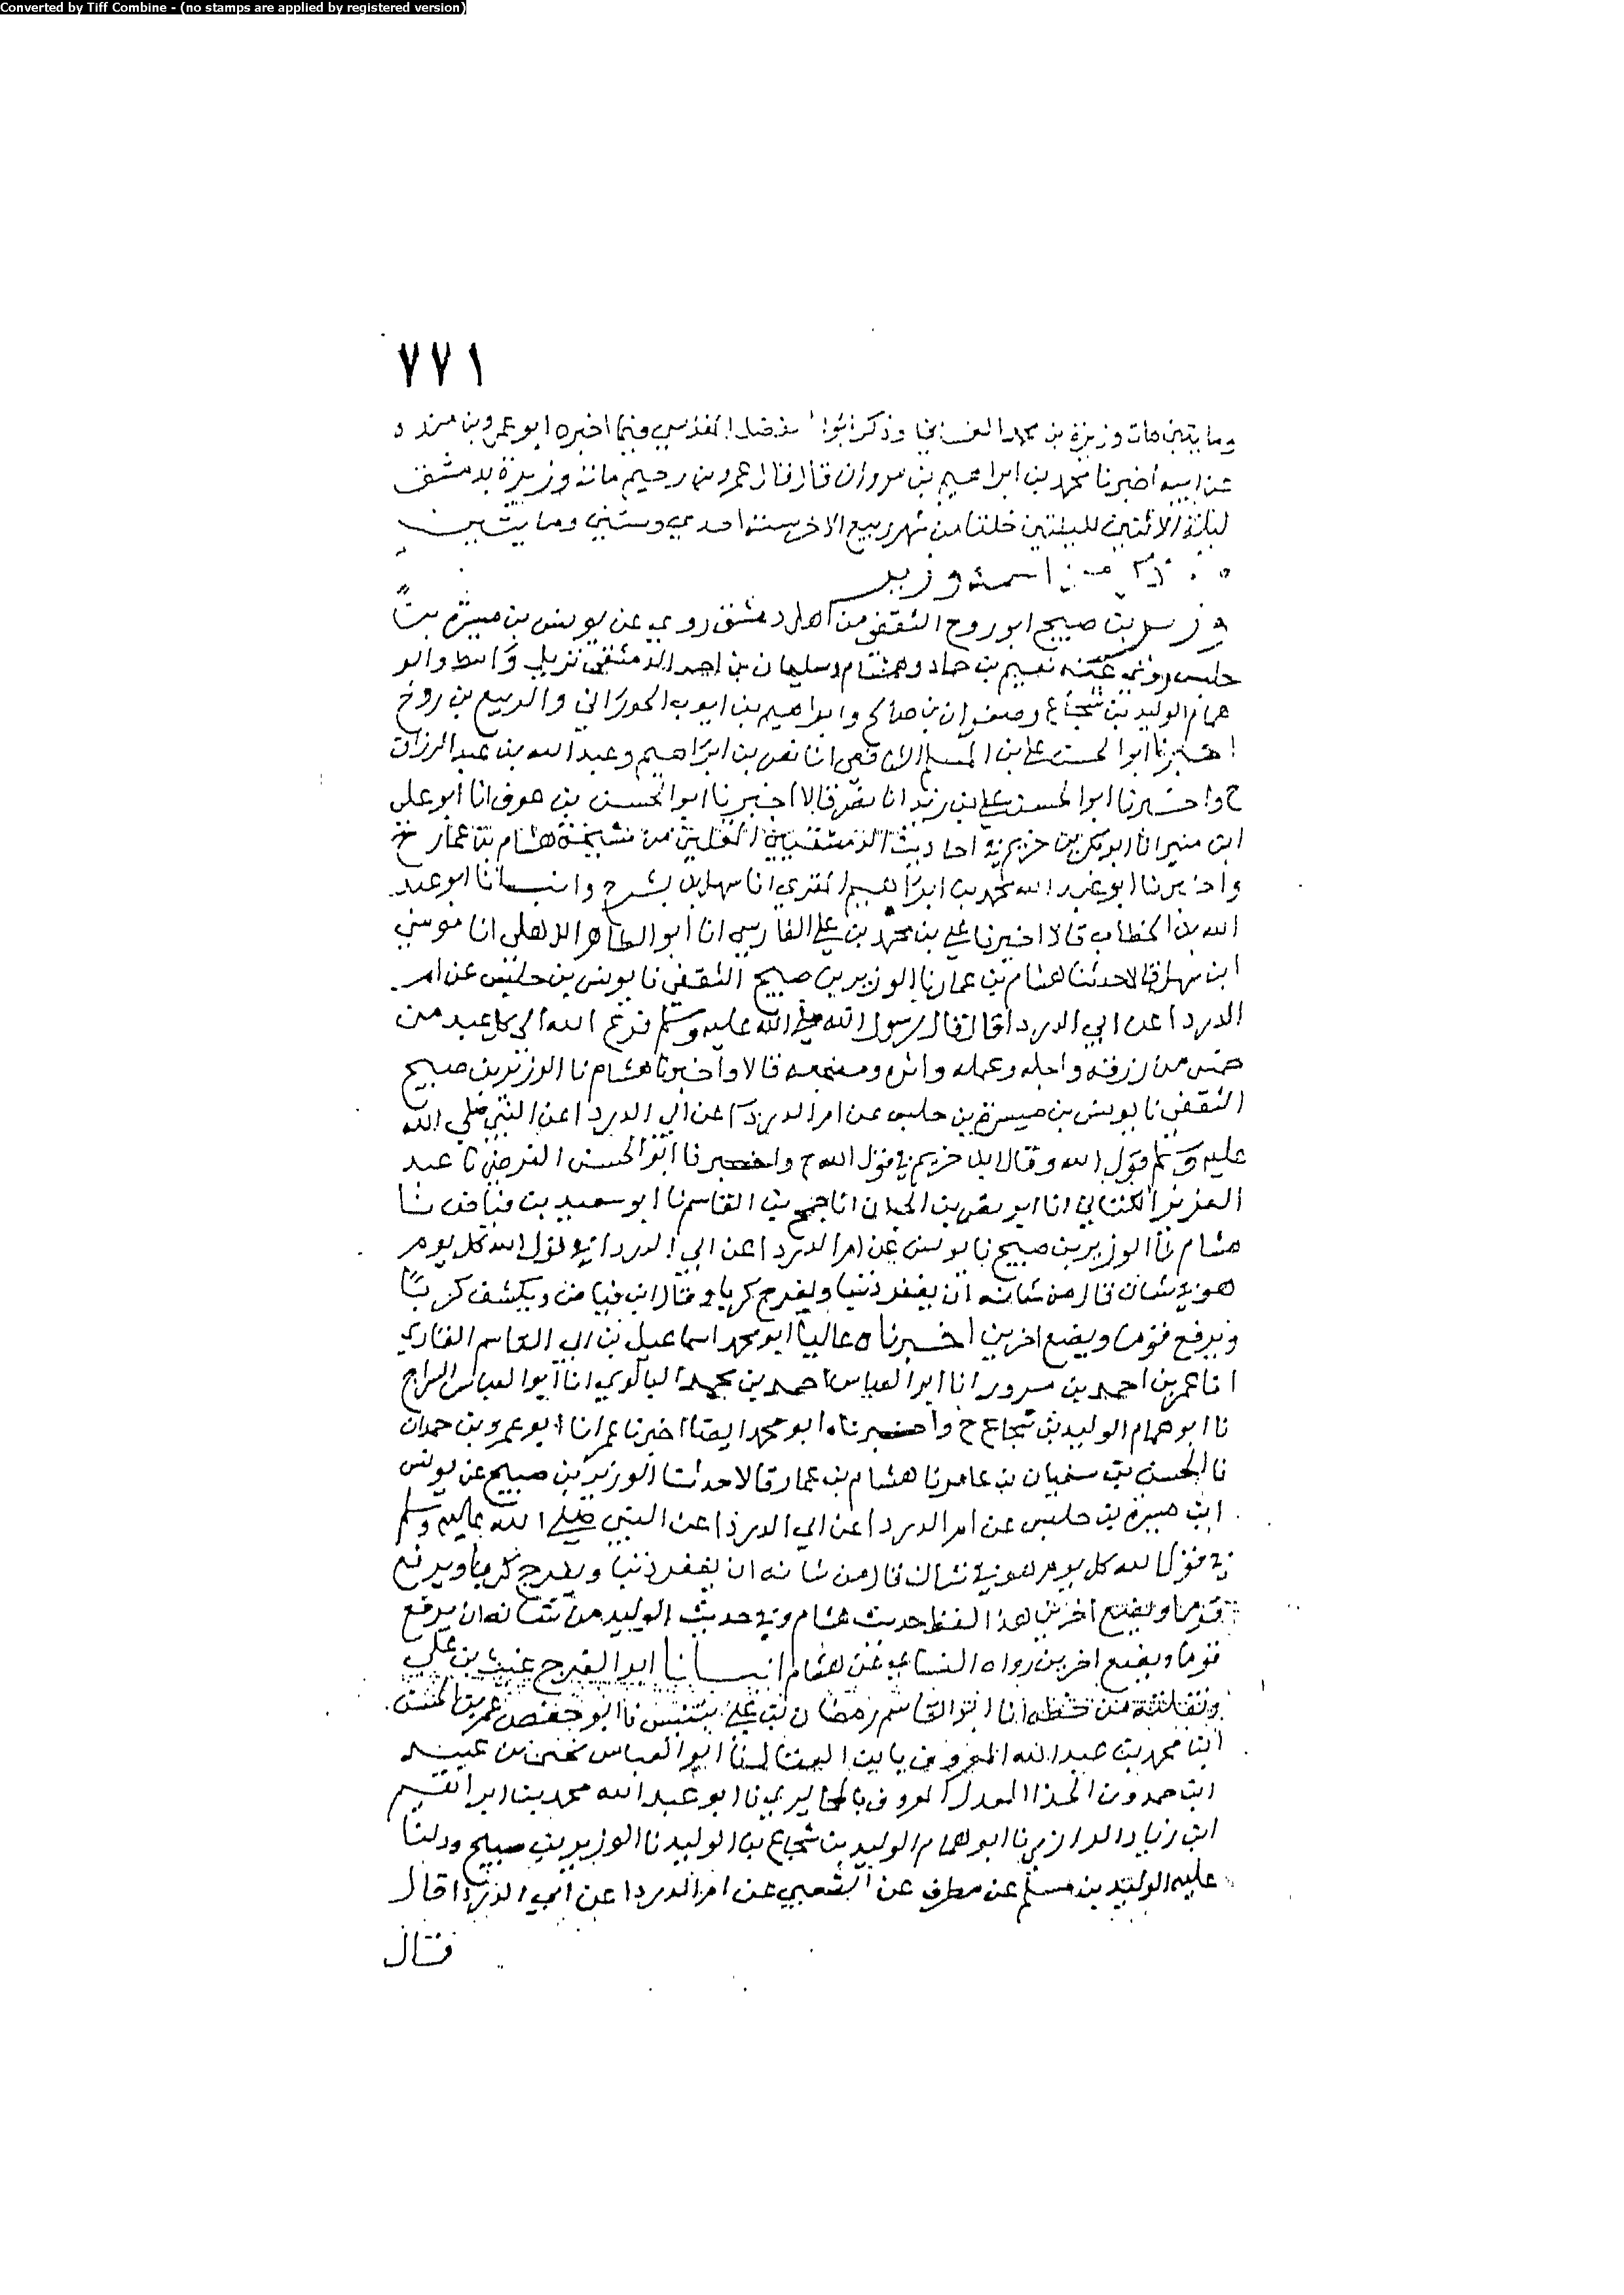 Converted by Tiff Combine - (no stamps are applied by registered version)
٧٧١
ومايتين مات وزيرة بن محمد الغساني وذكر ابو الفضل المقدسي فيما اخبره ابو عمرو بن مندة
عن ابيه اخبرنا محمد بن ابراهيم بن مروان قال قال عمرو بن دحيم مات وزيرة بدمشق
ليلة الاثنين لليلتين خلتا من شهر ربيع الاخر سنة احدي وستين ومايتين
ذكر من اسمه وزير
وزير بن صبيح ابو روح الثقفي من اهل دمشق روي عن يونس بن ميسرة بن
حلبس روي عنه نعيم بن حماد وهشام وسليمان بن احمد الدمشقي نزيل واسط وابو
همام الوليد بن شجاع وصفوان بن صالح وابراهيم بن ايوب الحوراني والربيع بن روح
اخبرنا ابو الحسن علي بن المسلم الفقيه انا نصر بن ابراهيم وعبد الله بن عبد الرزاق
ح واخبرنا ابو الحسن علي بن زيد انا نصر قالا اخبرنا ابو الحسن بن عوف انا ابو علي
ابن منير انا ابو بكر بن خريم في احاديث الدمشقيين المقلين من مشيخة هشام بن عمار ح
واخبرنا ابو عبد الله محمد بن ابراهيم المقري انا سهل بن بشر ح وانبانا ابو عبد
الله بن الحطاب قالا اخبرنا علي بن محمد بن علي الفارسي انا ابو الطاهر الذهلي انا موسي
ابن سهل قالا حدثنا هشام بن عمار نا الوزير بن صبيح الثقفي نا يونس بن حلبس عن ام
الدردا عن ابي الدردا قال قال رسول الله صلي الله عليه وسلم فرغ الله الي كل عبد من
خمس من رزقه واجله وعمله واثره ومضجعه قالا واخبرنا هشام نا الوزير بن صبيح
الثقفي نا يونس بن ميسرة بن حلبس عن ام الدردا عن ابي الدردا عن النبي صلي الله
عليه وسلم قول الله وقال ابن خريم في قول الله ح واخبرنا ابو الحسن الفرضي نا عبد
العزيز الكتاني انا ابو نصر بن الجبان انا جمح بن القاسم نا ابو سعيد بن فياض نا
هشام نا الوزير بن صبيح نا يونس عن ام الدردا عن ابي الدردا في قول الله كل يوم
هو في شان قال من شانه ان يغفر ذنبا ويفرج كربا وقال ابن فياض ويكشف كربا
ويرفع قوما ويضع اخرين اخبرناه عاليا ابو محمد اسماعيل بن ابي القاسم القاري
انا عمر بن احمد بن مسرور انا ابو العباس احمد بن محمد البالوي انا ابو العباس السراج
نا ابو همام الوليد بن شجاع ح واخبرناه ابو محمد ايضا اخبرنا عمر انا ابو عمرو بن حمدان
نا الحسن بن سفيان بن عامر نا هشام بن عمار قالا حدثنا الوزير بن صبيح عن يونس
ابن ميسرة بن حلبس عن ام الدردا عن ابي الدردا عن النبي صلي الله عليه وسلم
في قول الله كل يوم هو في شان قال من شانه ان يغفر ذنبا ويفرج كربا ويرفع
قوما ويضع اخرين هذا لفظ حديث هشام وفي حديث الوليد من شانه ان يرفع
قوما ويضع اخرين رواه النسايي عن هشام انبانا ابو الفرج غيث بن علي
ونقلته من خطه انا ابو القاسم رمضان بن علي بتنيس نا ابو حفص عمر بن
انا محمد بن عبد الله المعروف بابن ابو العباس بن عبيد
ابن حمدون المعدل المعروف نا ابو عبد الله محمد بن ابراهيم
ابن زياد الرازي نا ابو همام الوليد بن شجاع بن الوليد نا الوزير بن صبيح ودلنا
عليه الوليد بن مسلم عن مطرف عن الشعبي عن ام الدردا عن ابي الدردا قال
قال